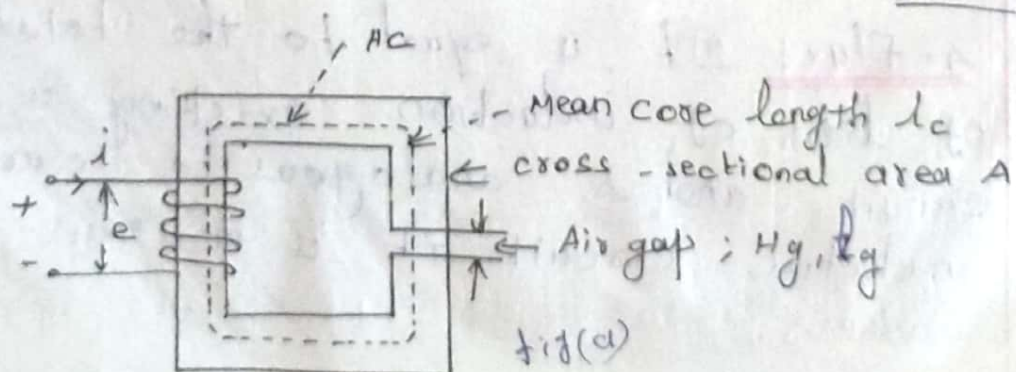 Ac
Mean core length lc
i
cross-sectional area A
+
e
Air gap ; Hg, lg
-
fig(a)